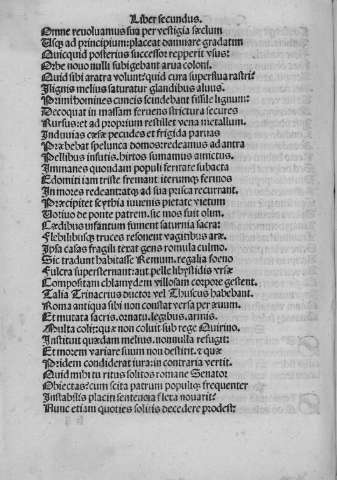 Liber secundus.
Omne reuoluamus sua per vestigia sæclum
Usq; ad principium: placeat damnare gradatim
Quicquid posterius successor repperit vsus:
Orbe nouo nulli subigebant arua coloni.
Quid sibi aratra volunt? quid cura superflua rastri?
Ilignis melius saturatur glandibus aluus.
Primi homines cuneis scindebant fissile lignum:
Decoquat in massam feruens strictura secures
Rursus: et ad proprium restillet vena metallum.
Induuias cæsæ pecudes et frigida paruas
Præbebat spelunca domos: redeamus ad antra
Pellibus insutis. hirtos sumamus amictus.
Immanes quondam populi feritate subacta
Edomiti iam triste fremant: iterumq; ferinos
In mores redeant: atq; ad sua prisca recurrant.
Præcipitet scythia iuuenis pietate vietum
Uotiuo de ponte patrem. sic mos fuit olim.
Cædibus infantum fument saturnia sacra:
Flebilibusq; truces resonent vagitibus aræ.
Ipsa casas fragili texat gens romula culmo.
Sic tradunt habitasse Remum. regalia foeno
Fulcra supersternant: aut pelle libystidis vrsæ
Compositam chlamydem villosam corpore gestent.
Talia Trinacrius ductor vel Thuscus habebant.
Roma antiqua sibi non constat versa per æuum.
Et mutata sacris. ornatu. legibus. armis.
Multa colit: quæ non coluit sub rege Quirino.
Instituit quædam melius. nonnulla refugit:
Et morem variare suum non destitit. & quæ
Pridem condiderat iura: in contraria vertit.
Quid mihi tu ritus solitos romane Senator
Obiectas? cum scita patrum populiq; frequenter
Instabilis placiti sententia flexa nouarit?
Nunc etiam quoties solitis decedere prodest: